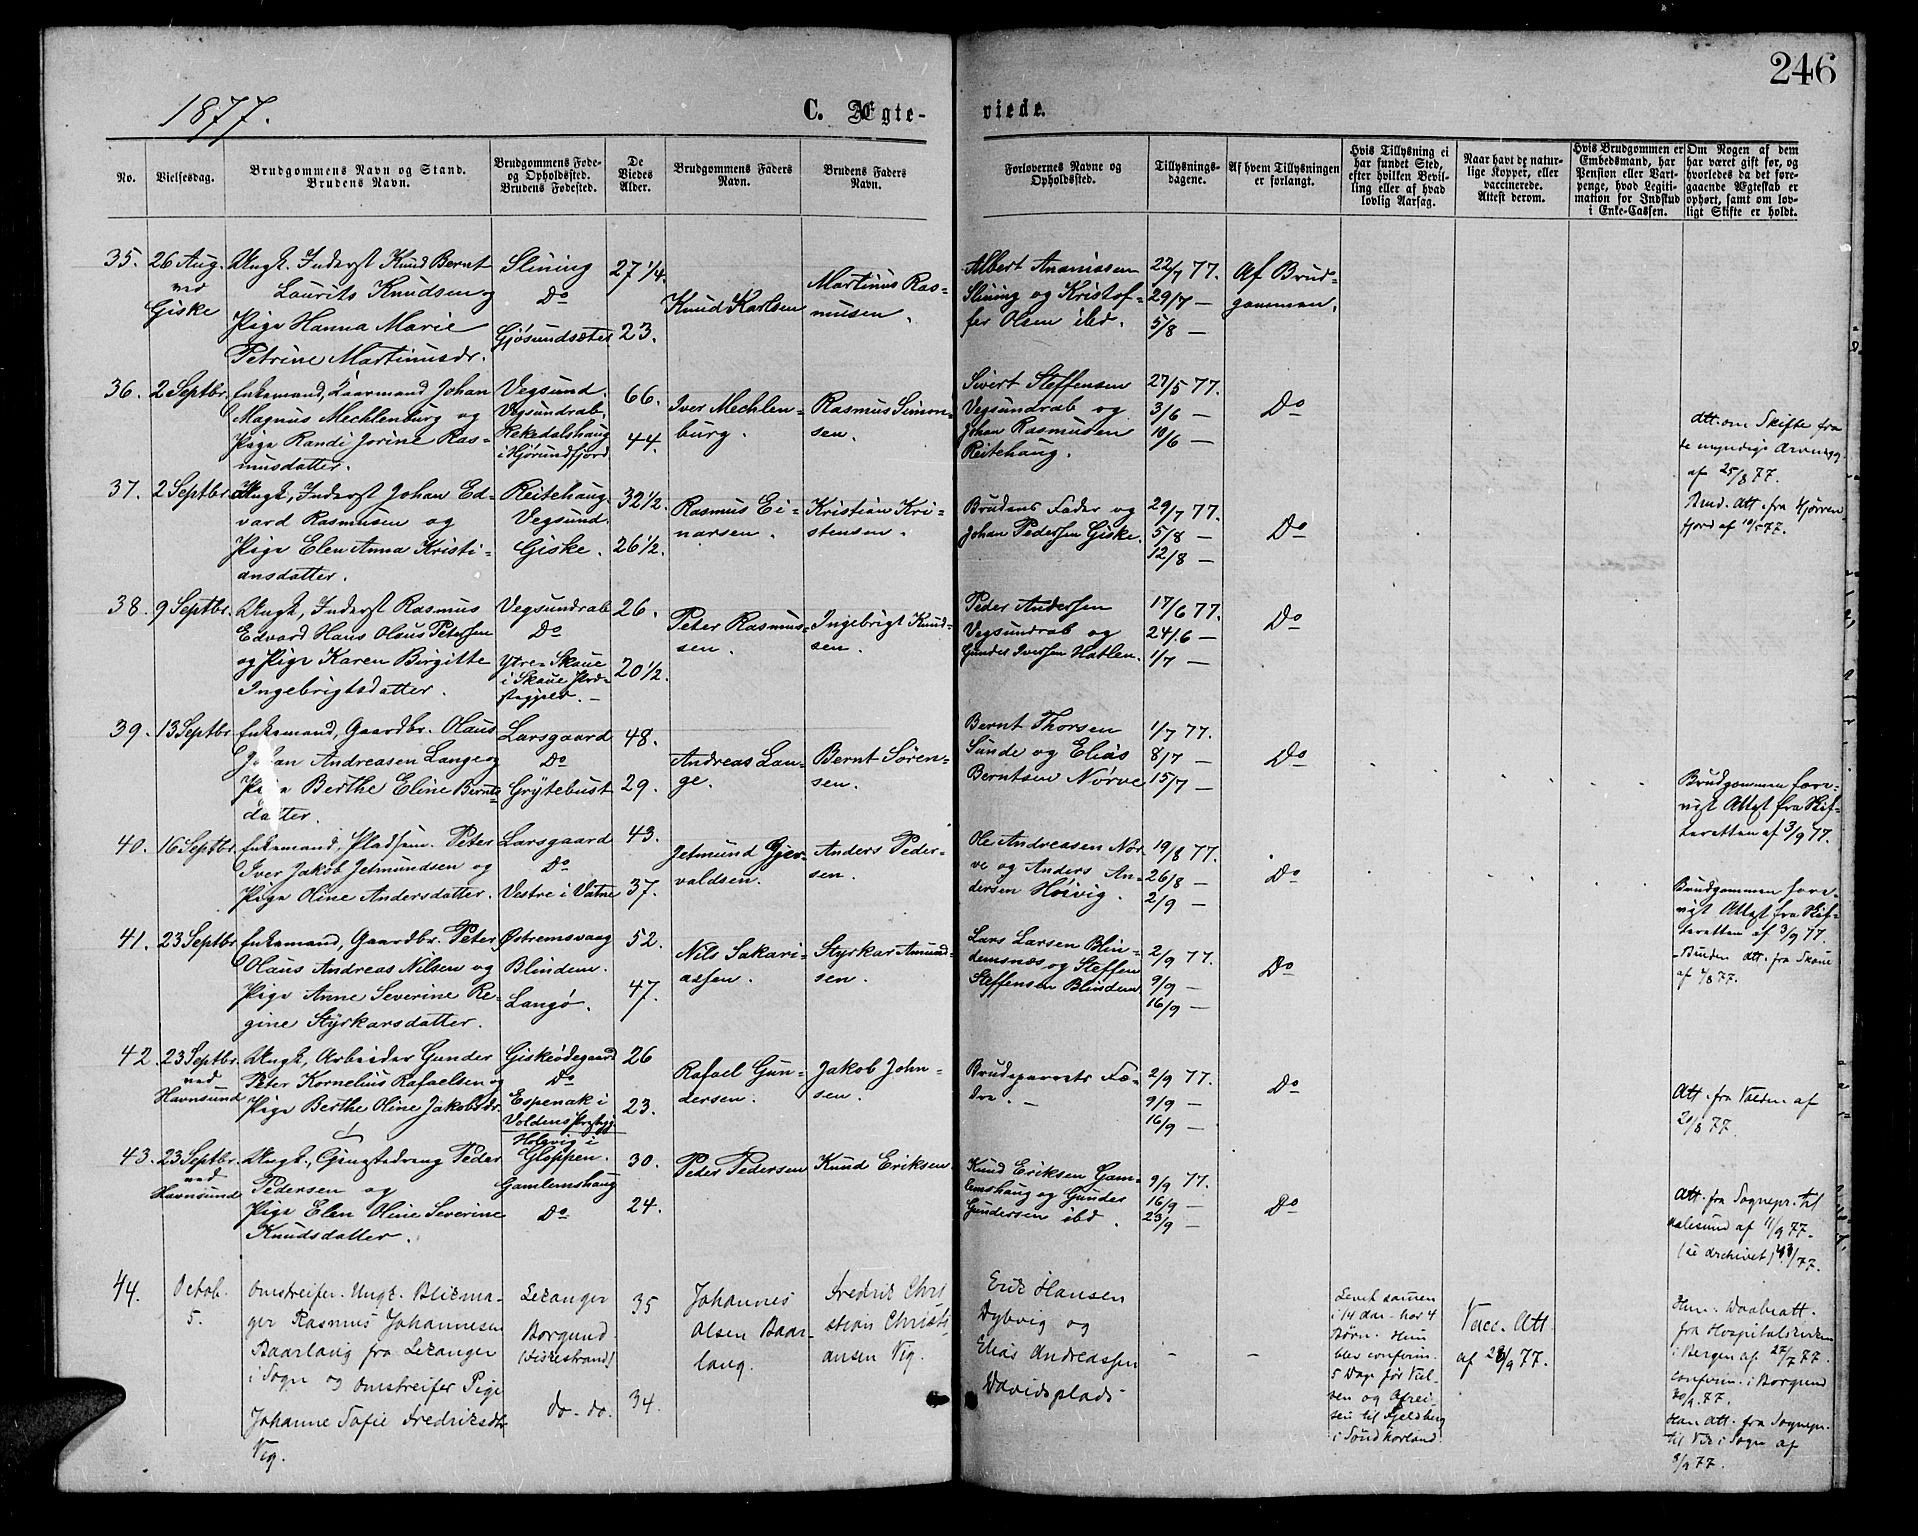 246
1877.
C. Ægte-
viede.
No.
Vielsesdag.
Brudgommens Navn og Stand.
Brudens Navn.
Brudgommens Føde-
og Opholdssted.
Brudens Fødested.
De
Viedes
Alder.
Brudgommens Faders
Navn.
Brudens Faders
Navn.
Forlovernes Navne og
Opholdssted.
Tillysnings-
dagene.
Af hvem Tillysningen
er forlangt.
Hvis Tillysning ei
har fundet Sted,
efter hvilken Bevil-
ling eller af hvad
lovlig Aarsag.
Naar havt de natur-
lige Kopper, eller
vaccinerede.
Attest derom.
Hvis Brudgommen er
Embedsmand, har
Pension eller Vart-
penge, hvad Legiti-
mation for Indskud
i Enke-Cassen.
Om Nogen af dem
har været gift før, og
hvorledes da det fore-
gaaende Ægteskab er
ophørt, samt om lov-
ligt Skifte er holdt.
35.
26 Aug.
ved
Giske
Ungk. Inderst Knud Bernt
Laurits Knudsen og
Pige Hanna Marie
Petrine Martinusdr.
Slining
Do
Gjøsundsæter
27 1/4.
23.
Knud Karlsen
Martinus Ras-
musen.
Albert Ananiassen
Slining og Kristof-
fer Olsen ibd.
22/7 77.
29/7 —
5/8 —
Af Brud-
gommen.
36.
2 Septbr.
Enkemand, Kaarmand Johan
Magnus Mechlenburg og
Pige Randi Jorine Ras-
musdatter.
Vegsund.
Vegsundrab.
Rekedalshaug
i Hjørundfjord
66.
44.
Iver Mechlen-
burg.
Rasmus Simon-
sen.
Sivert Steffensen
Vegsundrab og
Johan Rasmusen
Reitehaug.
27/5 77.
3/6 —
10/6 —
Do
Att. om Skifte fra
de myndige Arvinger
af 25/8 77.
Brud. Att. fra Hjørren-
fjord af 77.
37.
2 Septbr.
Ungk, Inderst Johan Ed-
vard Rasmusen og
Pige Elen Anna Kristi-
ansdatter.
Reitehaug.
Vegsund.
Giske.
32 1/2.
26 1/2.
Rasmus Ei-
narsen.
Kristian Kri-
stensen.
Brudens Fader og
Johan Pedersen Giske.
29/7 77.
5/8 —
12/8 —
Do
38.
9 Septbr.
Ungk, Inderst Rasmus
Edvard Hans Olaus Petersen
og Pige Karen Birgitte
Ingebrigtsdatter.
Vegsundrab
Do
Ytre-Skaue
i Skaue Præ-
stegjeld.
26.
20 1/2.
Peter Rasmus-
sen.
Ingebrigt Knud-
sen.
Peder Andersen
Vegsundrab og
Gunder Iversen Hatlen.
17/6 77.
24/6 —
1/7 —
Do
39.
13 Septbr
Enkemand, Gaardbr. Olaus
Johan Andreasen Lange og
Pige Berthe Eline Bernts-
datter.
Larsgaard
Do
Grytebust
48.
29.
Andreas Lan-
ge.
Bernt Søren-
sen.
Bernt Thorsen
Sunde og Elias
Berntsen Nørve
1/7 77.
8/7 —
15/7 —
Do
Brudgommen fore-
vist Attest fra Skif-
teretten af 3/9 77.
40.
16 Septbr.
Enkemand, Pladsem. Peter
Iver Jakob Jetmundsen og
Pige Oline Andersdatter.
Larsgaard
Do
Vestre i Vatne
43.
37.
Jetmund Gjer-
valdsen.
Anders Peder-
sen.
Ole Andreassen Nør-
ve og Anders An-
dersen Høivig.
19/8 77.
26/8 —
2/9 —
Do
Brudgommen fore-
vist Attest fra Skif-
teretten af 3/9 77.
41.
23 Septbr
Enkemand, Gaardbr. Peter
Olaus Andreas Nilsen og
Pige Anne Severine Re-
gine Styrkarsdatter.
Østremsvaag
Blindem.
Langø.
52.
47.
Nils Sakari-
assen.
Styrkar Amund-
sen.
Lars Larsen Blin-
demsnæs og Steffen
Steffensen Blindem
2/9 77.
9/9 —
16/9 —
Do
Bruden Att. fra Skaue
af 77.
42.
23 Septbr.
ved
Havnsund
Ungk, Arbeider Gunder
Peter Kornelius Rafaelsen og
Pige Berthe Oline Jakobsdr.
Giskeødegaard
Do
Espenak i
Voldens Prstgj.
26
23.
Rafael Gun-
dersen.
Jakob John-
sen.
Brudeparrets Fæ-
dre. —
2/9 77.
9/9 —
16/9 —
Do
Att. fra Volden af
20/8 77.
43.
23 Septbr.
ved
Havnsund
Ungk., Gangstadreng Peder
Pedersen og
Pige Elen Oline Severine
Knudsdatter.
Holevig i
Gloppen.
Gamlemshaug
Do
30.
24.
Peder Pedersen
Knud Eriksen.
Knud Eriksen Gam-
lemshaug og Gunder
Gundersen ibd.
9/9 77.
16/9 —
23/9 —
Do
Att. fra Sognepr. til
Aalesund af 11/9 77.
44.
Octob.
5.
Omstreifer. Ungk. Blikma-
ger Rasmus Johannesen
Baarlaug fra Lekanger
i Sogn og Omstreifer Pige
Johanne Sofie Fredriksdtr
Vig.
Lekanger
Borgund
(Fiskestrand)
do. do.
35
34.
Johannes
Olsen Baar-
laug.
Fredrik Chri-
stian Christi-
ansen Vig.
Erik Hansen
Dybvig og
Elias Andreassen
Davidsplads
—
—
Levet sammen
i 14 Aar. har 4
Børn. Hun
blev confirm.
5 Dage før Viel-
sen og Afrei-
sen til Fjeldberg
i Søndhorland.
Vacc. Att
af 28/9 77.
Hun. Daabsatt.
fra Hospitalskirken
i Bergen af 27/7 77.
Confirm. i Borgund
30/9 77.
Han Att. fra Sognepr.
til Vik i Sogn af
77.